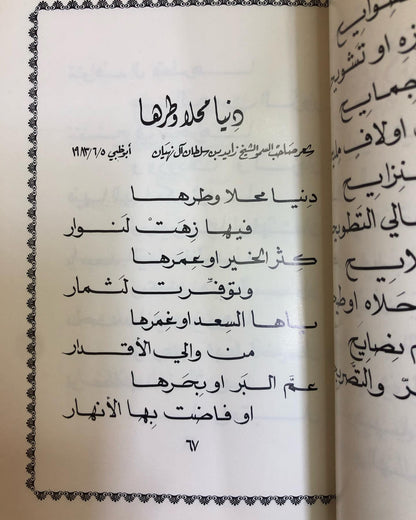 دنيا محلا وطرها
شعر صاحب السمو الشيخ زايد بن سلطان آل نهيان أبوظبي ١٩٨٣/٦/٥
دنيا محلا وطرها
فيها زهت لنوار
كثر الخير او عمرها
وتوفرت لثمار
ياها السعد او غمرها
من والي الأقدار
عم البر او بحرها
او فاضت بها الأنهار
٦٧
زه او تشوير
جمايح
او لاف
نزايح
الي التطويح
لايح
حلاه اوط
م نصايح
رّ والتصر